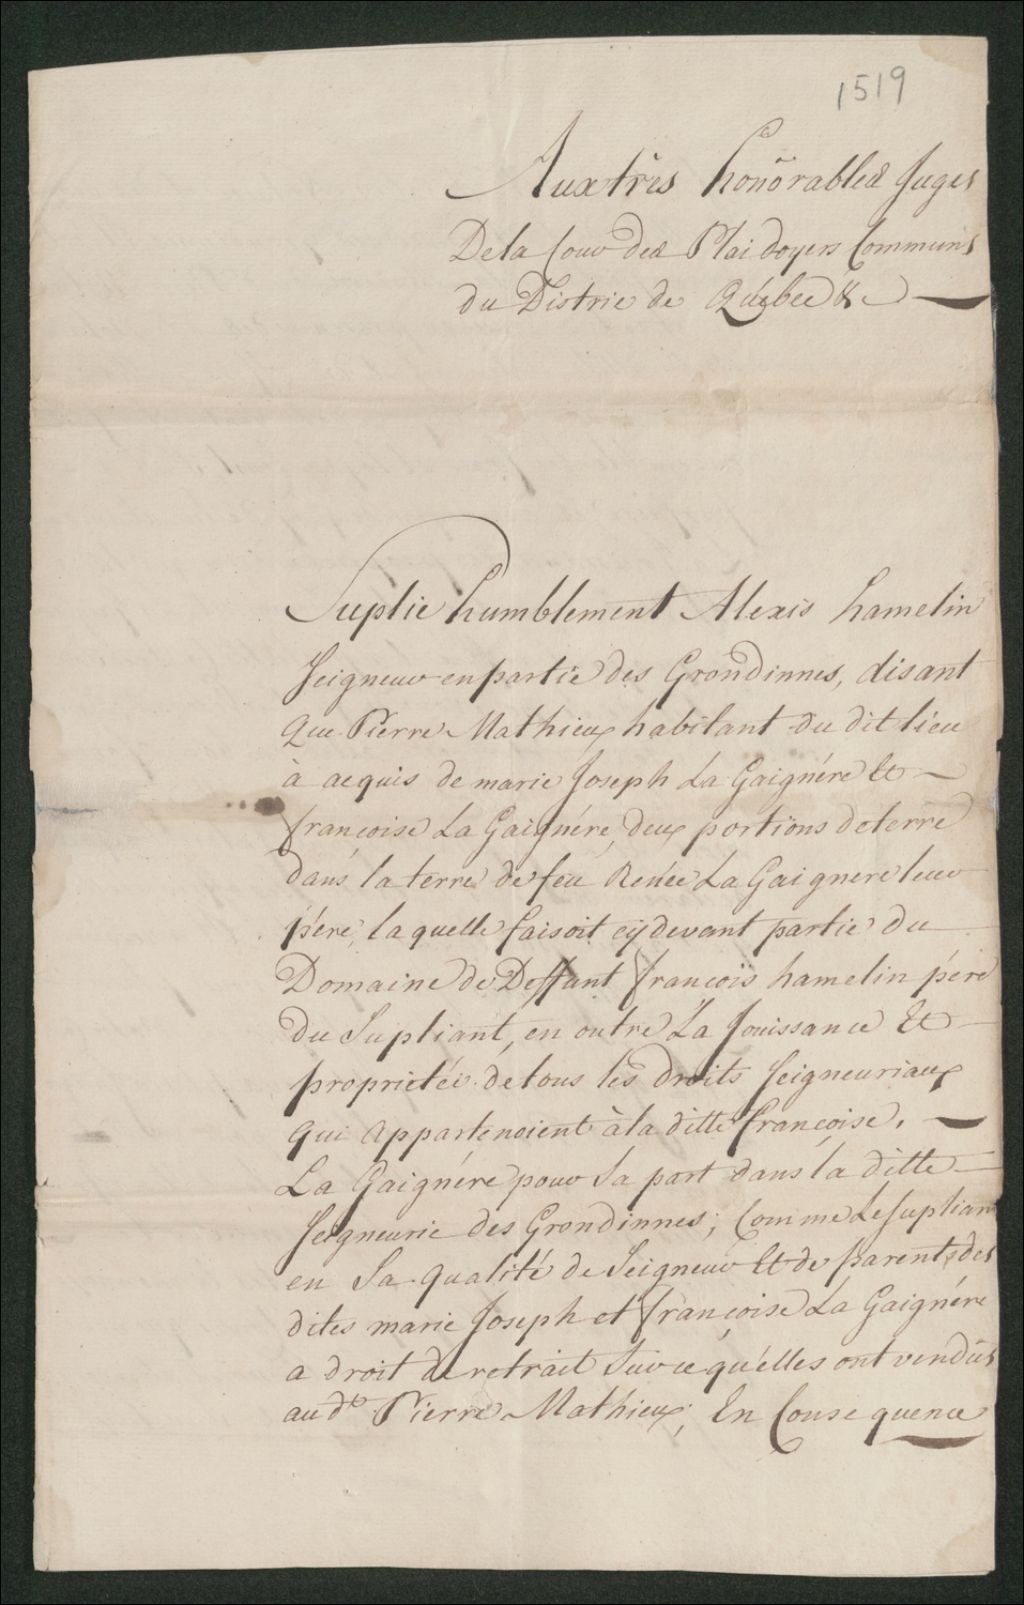 1519
Aux très honorables Juges
De la Cour des Plaidoyers Communs
du Distric de Québec &c
Suplie humblement Alexis hamelin
Seigneur en partie des Grondinnes, disant
Que Pierre Mathieux habitant du dit lieu
à acquis de marie Joseph La Gaignére Et
françoise La Gaignére, deux portions de terre
dans la terre de feu Renée La Gaignere leur
père, la quelle faisoit cy devant partie du
Domaine de Deffunt françois hamelin père
du Supliant, en outre La Jouissance Et
propriétée de tous les droits Seigneuriaux
qui appartenoient à la ditte françoise.
La Gaignére pour Sa part dans la ditte
Seigneurie des Grondinnes; Comme Le Supliant
en Sa qualité de Seigneur Et de parents des
dites marie Joseph et françoise La Gaignére
a droit de retrait Sur ce qu'elles ont vendûs
au dt. Pierre Mathieux; En Consequence